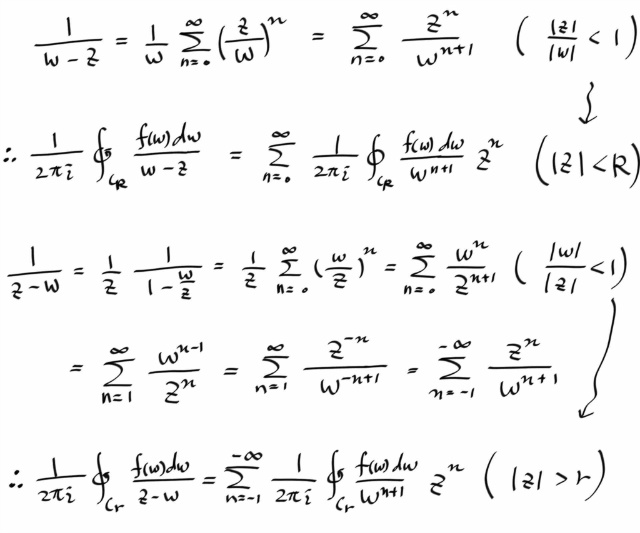 1/(w − z) = 1/w ∑_{n=0}^{∞} (z/w)^n = ∑_{n=0}^{∞} z^n/w^{n+1} ( |z|/|w| < 1 )
∴ 1/(2πi) ∮_{C_R} f(w)dw/(w − z) = ∑_{n=0}^{∞} 1/(2πi) ∮_{C_R} f(w)dw/w^{n+1} z^n (|z| < R)
1/(z − w) = 1/z 1/(1 − w/z) = 1/z ∑_{n=0}^{∞} (w/z)^n = ∑_{n=0}^{∞} w^n/z^{n+1} ( |w|/|z| < 1 )
= ∑_{n=1}^{∞} w^{n-1}/z^n = ∑_{n=1}^{∞} z^{-n}/w^{-n+1} = ∑_{n=-1}^{-∞} z^n/w^{n+1}
∴ 1/(2πi) ∮_{C_r} f(w)dw/(z − w) = ∑_{n=-1}^{-∞} 1/(2πi) ∮_{C_r} f(w)dw/w^{n+1} z^n ( |z| > r )